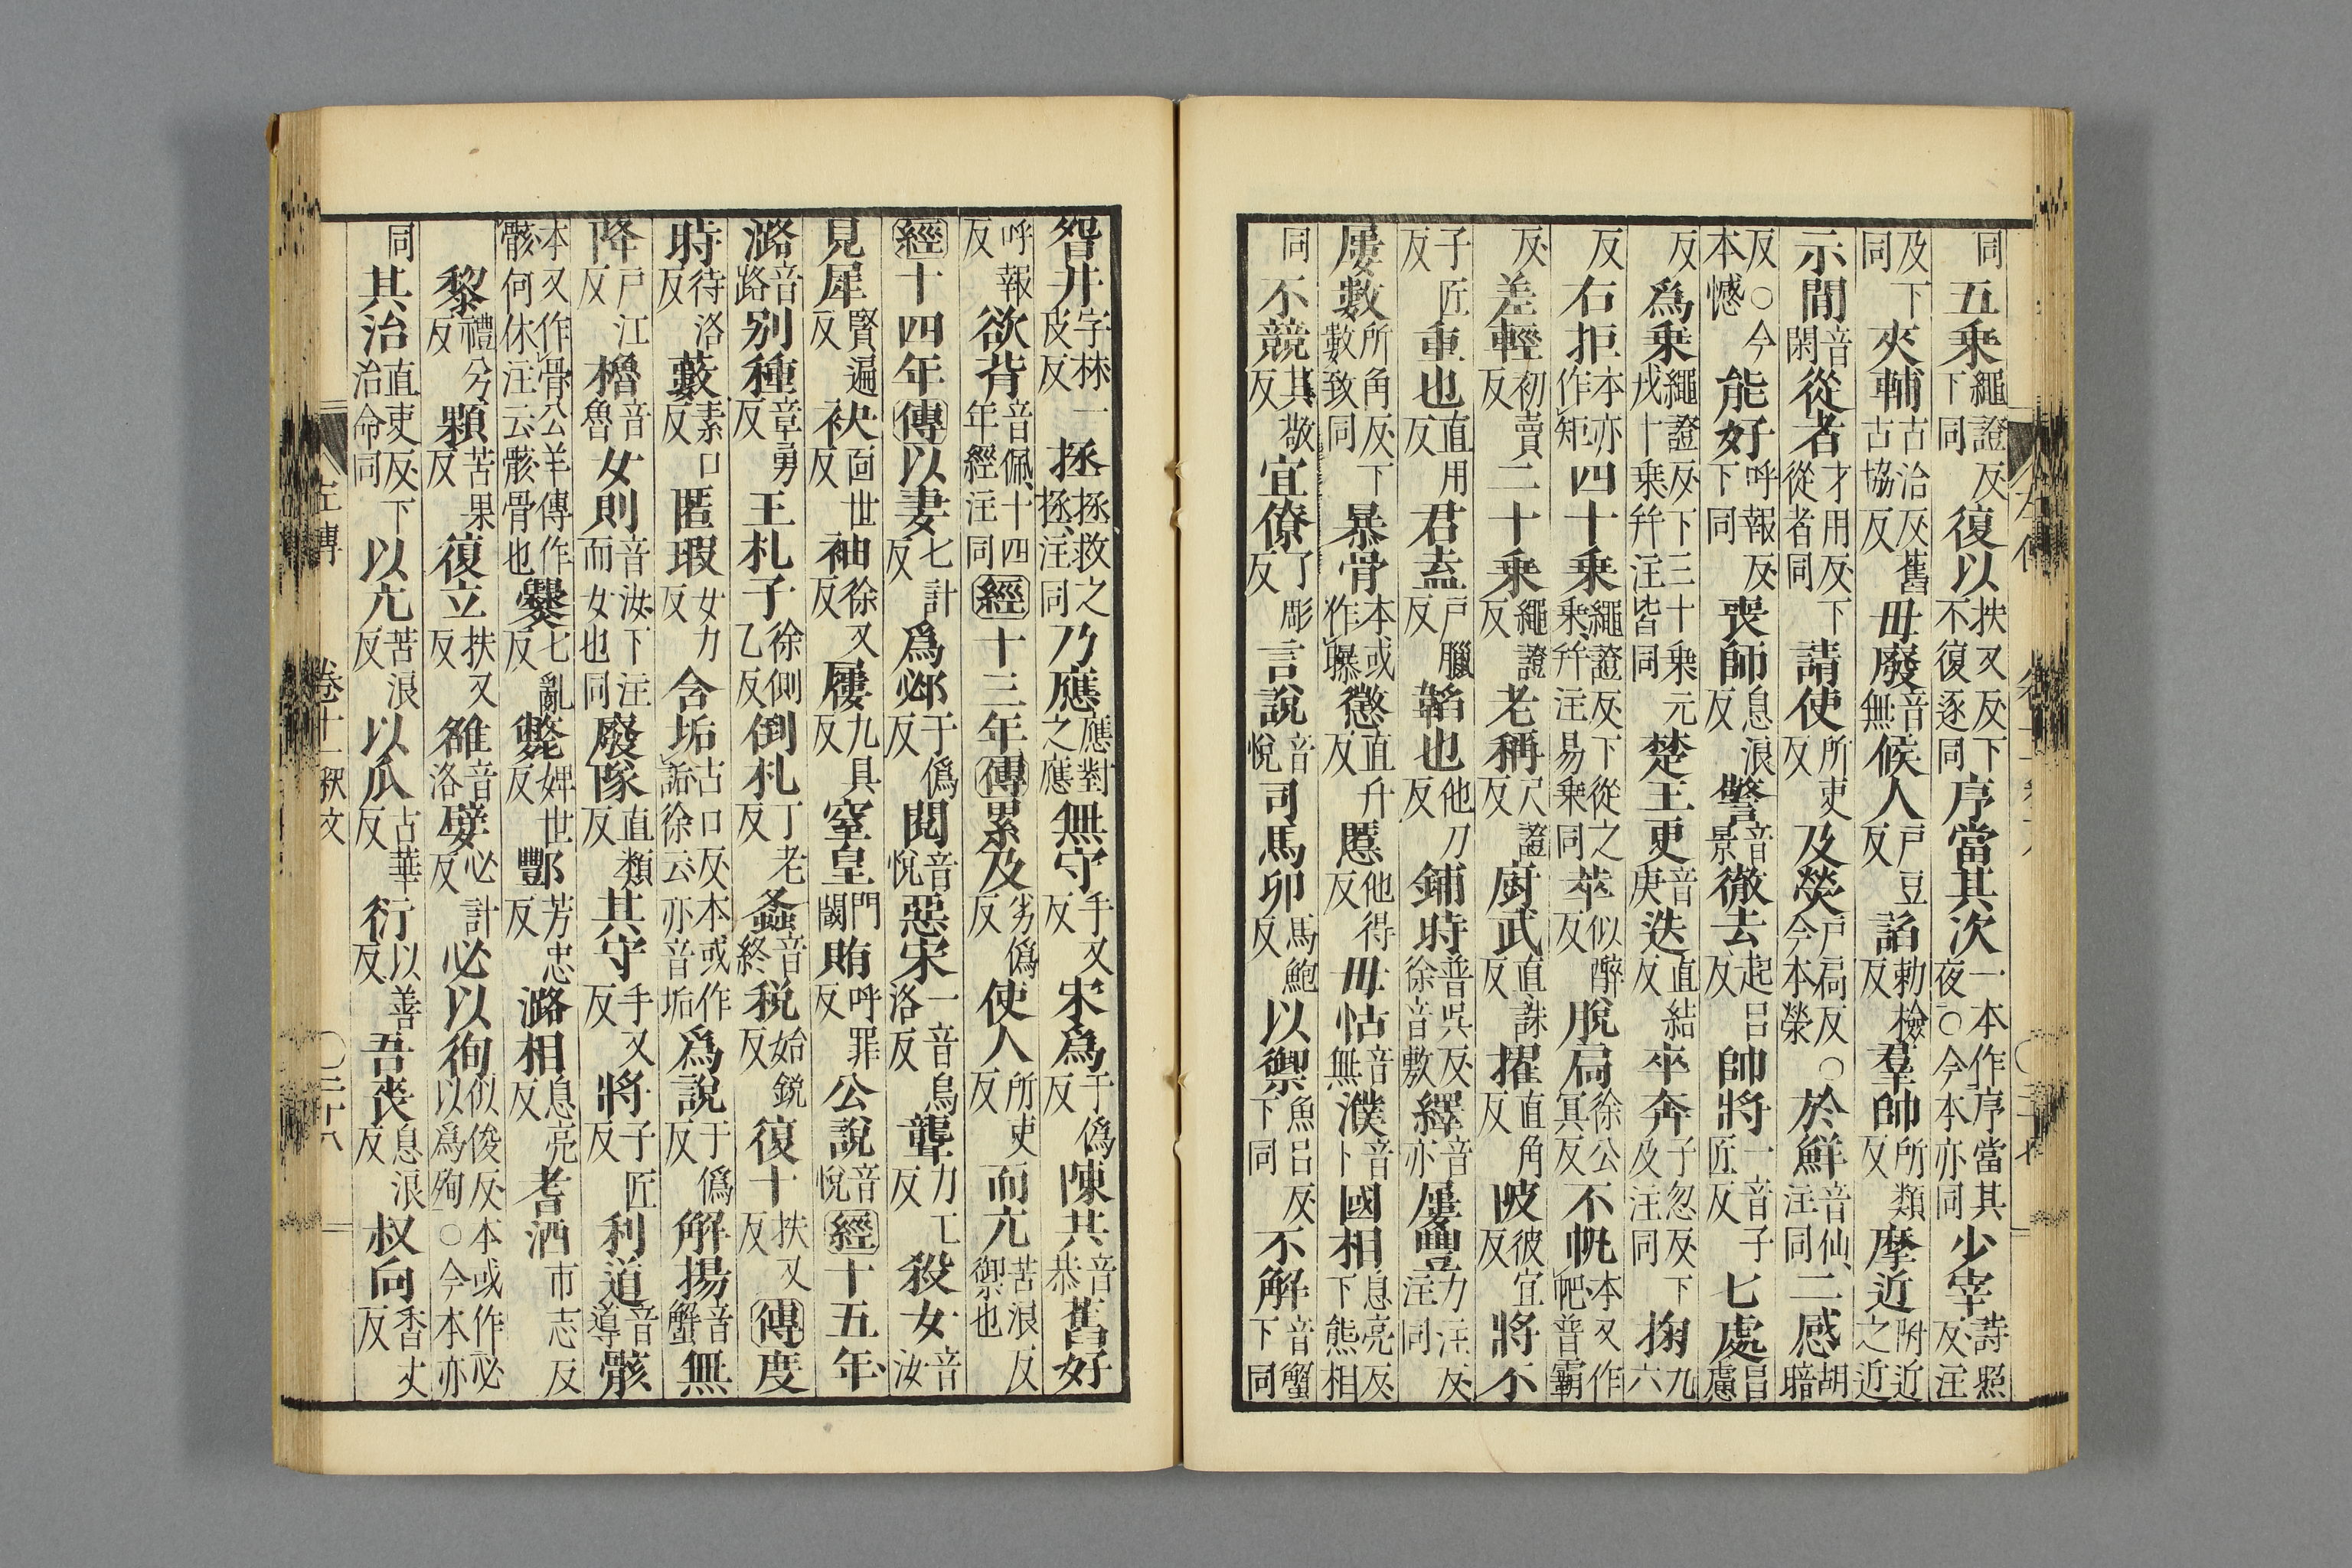 同五乘繩證反下同復以扶又反下不復逐同序當其次一本作序當其夜○今本亦同少宰詩照反注
及下同夾輔古洽反舊古協反毋廢音無候人戶豆反諂勅檢反羣帥所類反摩近附近之近
示閒音閑從者才用反下從者同請使所吏反及熒戶扃反今本滎○於鮮音仙注同二感胡暗
反○今本憾能好呼報反下同喪師息浪反警音景徹去起呂反帥將一音子匠反七處昌慮
反爲乘繩證反下三十乘元戎十乘幷注皆同楚王更音庚迭直結反卒奔子忽反下及注同掬九六
反右拒本亦作矩四十乘繩證反下從之乘幷注易乘同萃似醉反脫扃徐公冥反不帆本又作帊普霸
反差輕初賣反二十乘繩證反老稱尺證反廚武直誅反擢直角反陂彼宜反將不
子匠反重也直用反君盍戶臘反韜也他刀反鋪時普吳反徐音敷繹音亦屢豐力注反注同
屢數所角反下數致同暴骨本或作曝懲直升反慝他得反毋怙音無濮音卜國相息亮反下熊相
同不競其敬反宜僚了彫反言說音悅司馬卯馬鮑反以禦魚呂反下同不解音蟹下同
眢井字林一皮反拯拯救之拯注同乃應應對之應無守手又反宋爲于僞反陳共音恭舊好
呼報反欲背音佩十四年經注同經十三年傳累及劣僞反使人所吏反而亢苦浪反禦也
經十四年傳以妻七計反爲邲于僞反閱音悅惡宋一音烏洛反聾力工反殺女音汝
見犀賢遍反袂面世反袖徐又反屨九具反窒皇門賄呼罪反公說音悅經十五年
潞音路別種章勇反王札子徐側乙反倒札丁老反螽音終税始銳反復十扶又反傳度
時待洛反藪素口反匿瑕女力反含垢古口反本或作詬徐云亦音垢爲說于僞反解揚音蟹無
降戶江反櫓音魯女則音汝下注而女也同廢隊直類反其守手又反將子匠反利道音導骸
本又作骨公羊傳作骸何休注云骸骨也爨七亂反斃婢世反酆芳忠反潞相息亮反耆酒市志反
黎禮兮反顆苦果反復立扶又反雒音洛嬖必計反必以徇似俊反本或作必以爲殉○今本亦
同其治直吏反下治命同以亢苦浪反以瓜古華反衍以善反吾喪息浪反叔向香丈反
左傳 卷十一 釈文 ○二十八